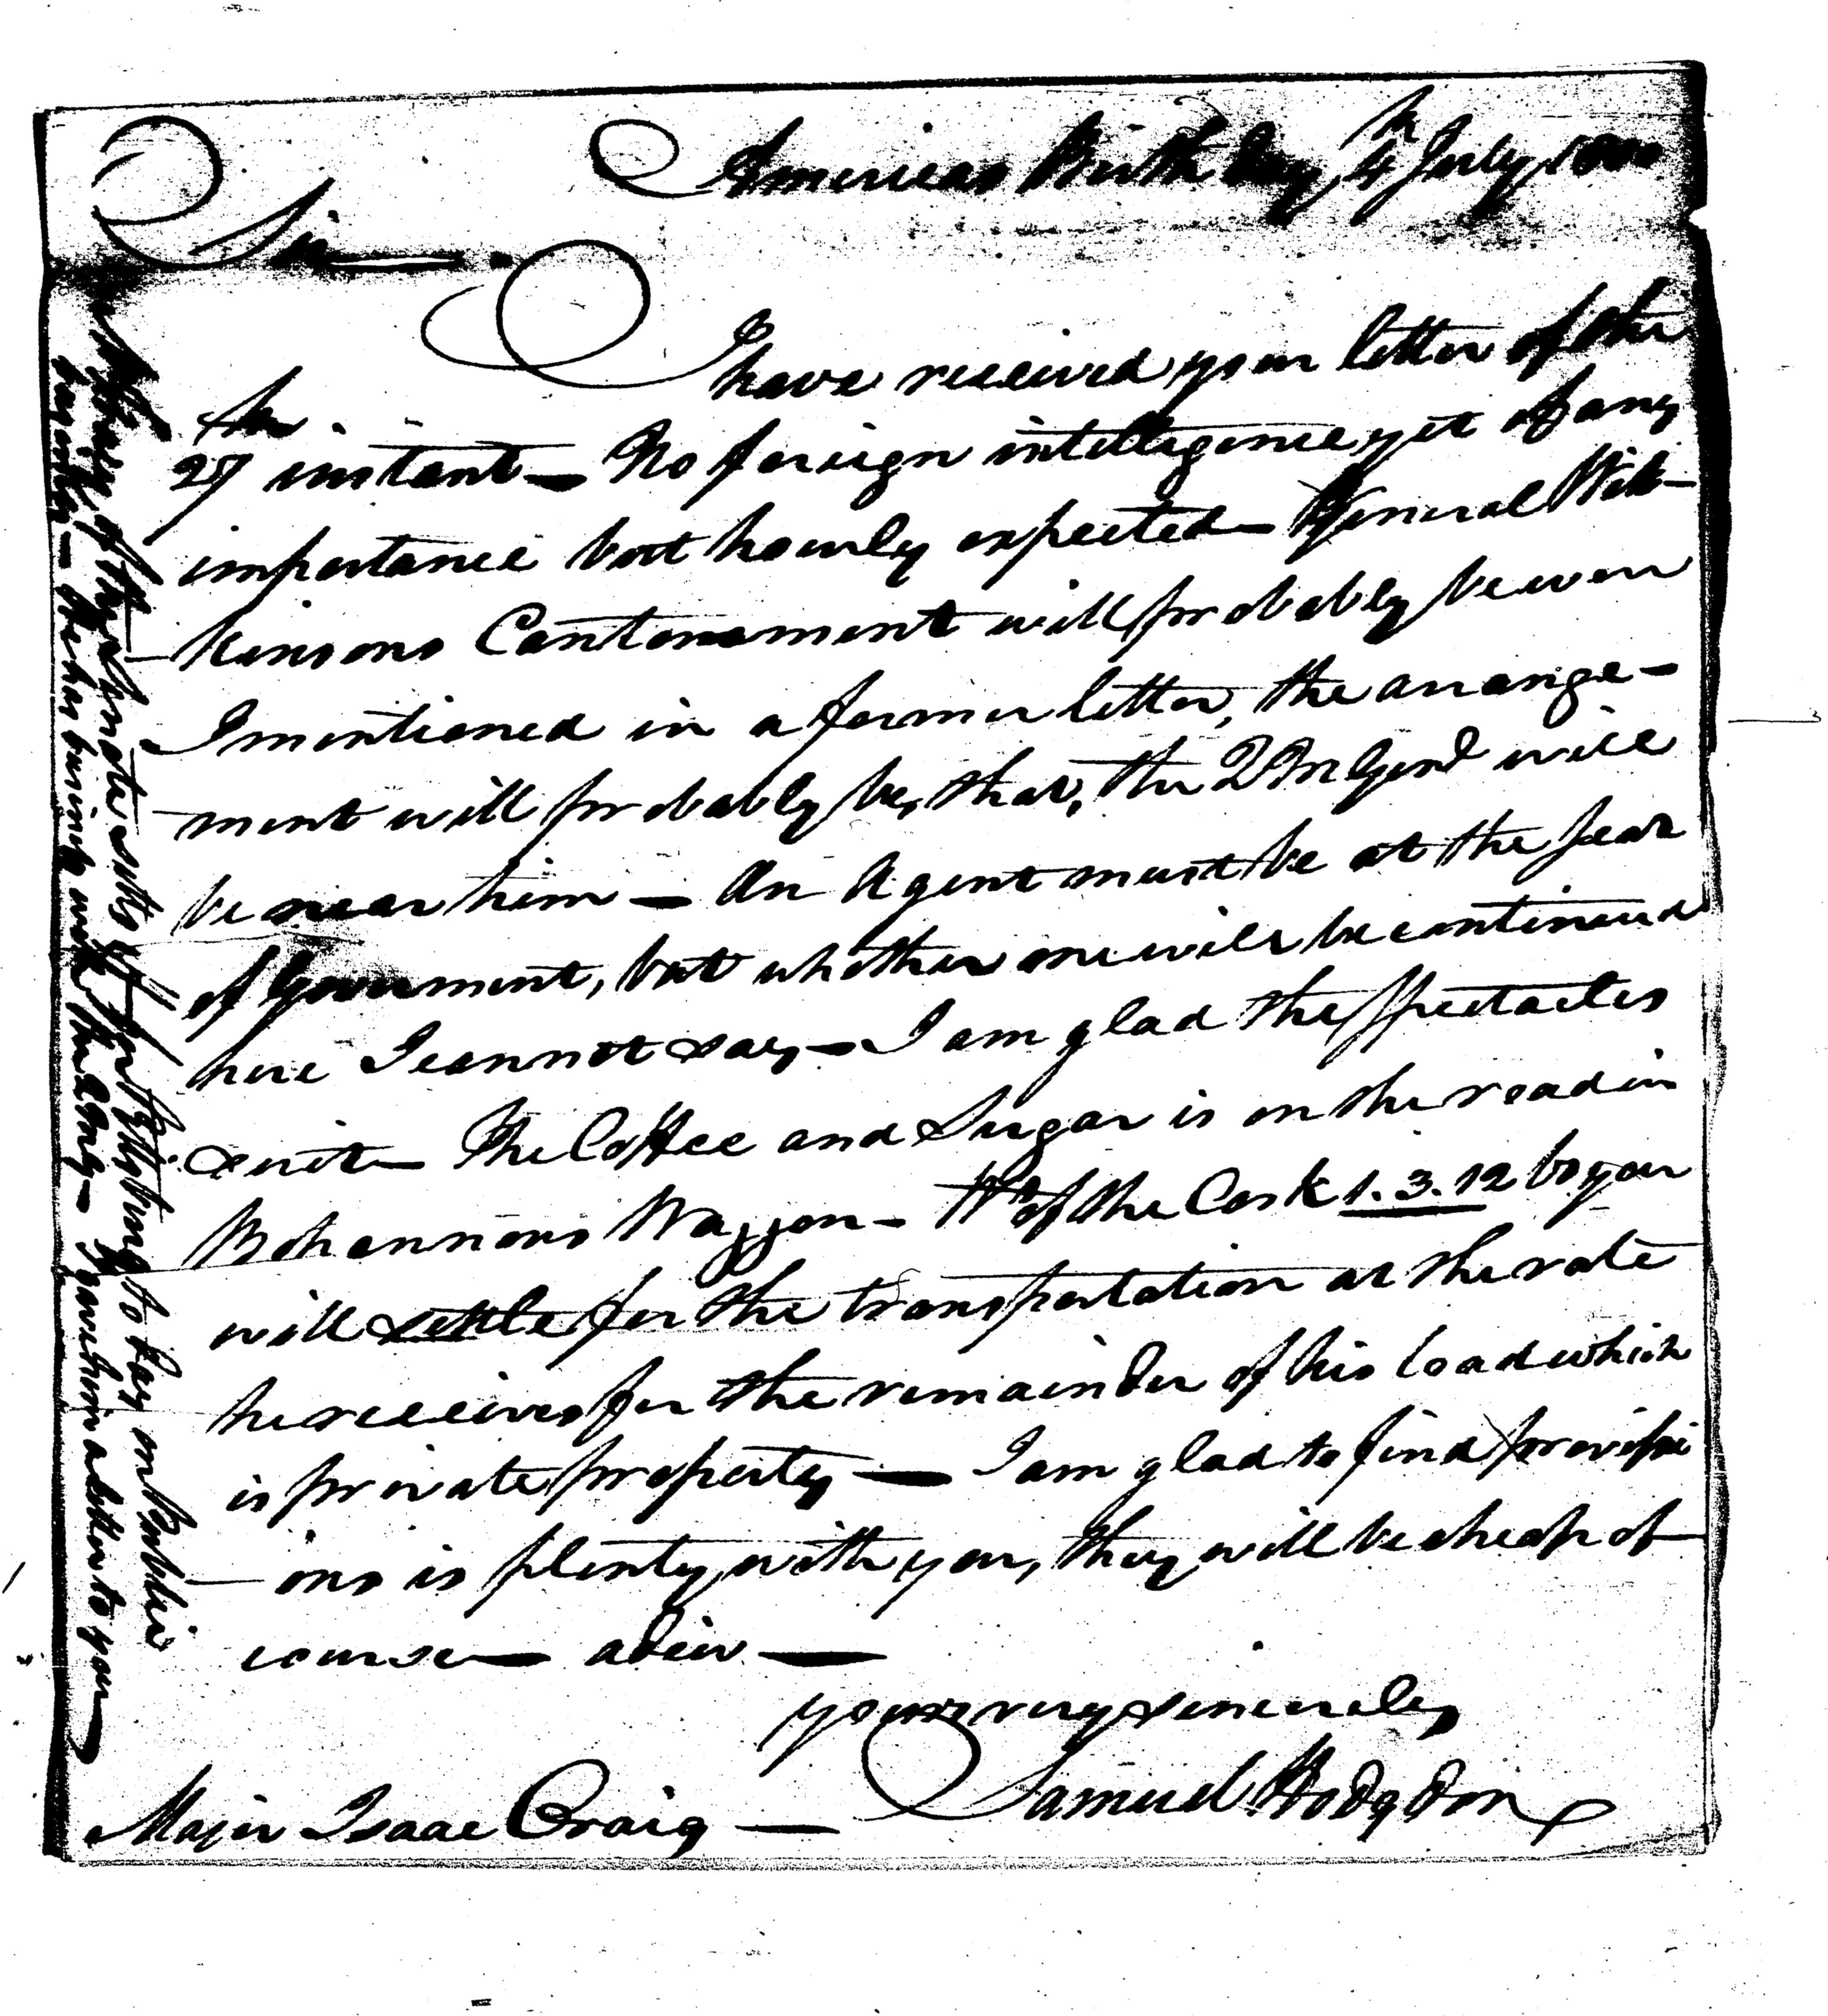 Americas Birth day, 4th July, 1800
Sir
I have received your letter of the
27th instant — No foreign intelligence yet of any
importance but hourly expected — General Wil-
-kinsons Cantonement will probably be were
I mentioned in a former letter, the arrange-
ment will probably be, that, the QM Genl will
be near him — An Agent must be at the Seat
of Government, but whether one will be continued
here I cannot say — I am glad the Spectacles
suit — The Coffee and Sugar is on the road in
Bohannons Waggon — Wt of the Cask 1.3.12 by you
will settle for the transportation at the rate
he receives for the remainder of his load which
is private property — I am glad to find provissi
-ons is plenty with you, they will be cheap of
course — adieu —
yours very sincerely
Samuel Hodgdon
Major Isaac Craig —
setts off for Pittsburg to day on Public
he has business with the QMG — I gave him a letter to you